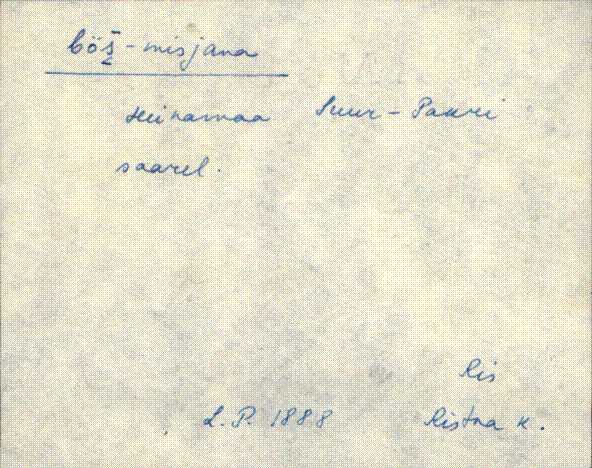 böš-misjana
Heinamaa Suur-Pakri
saarel.
Ris
L.P. 1888 Ristna k.